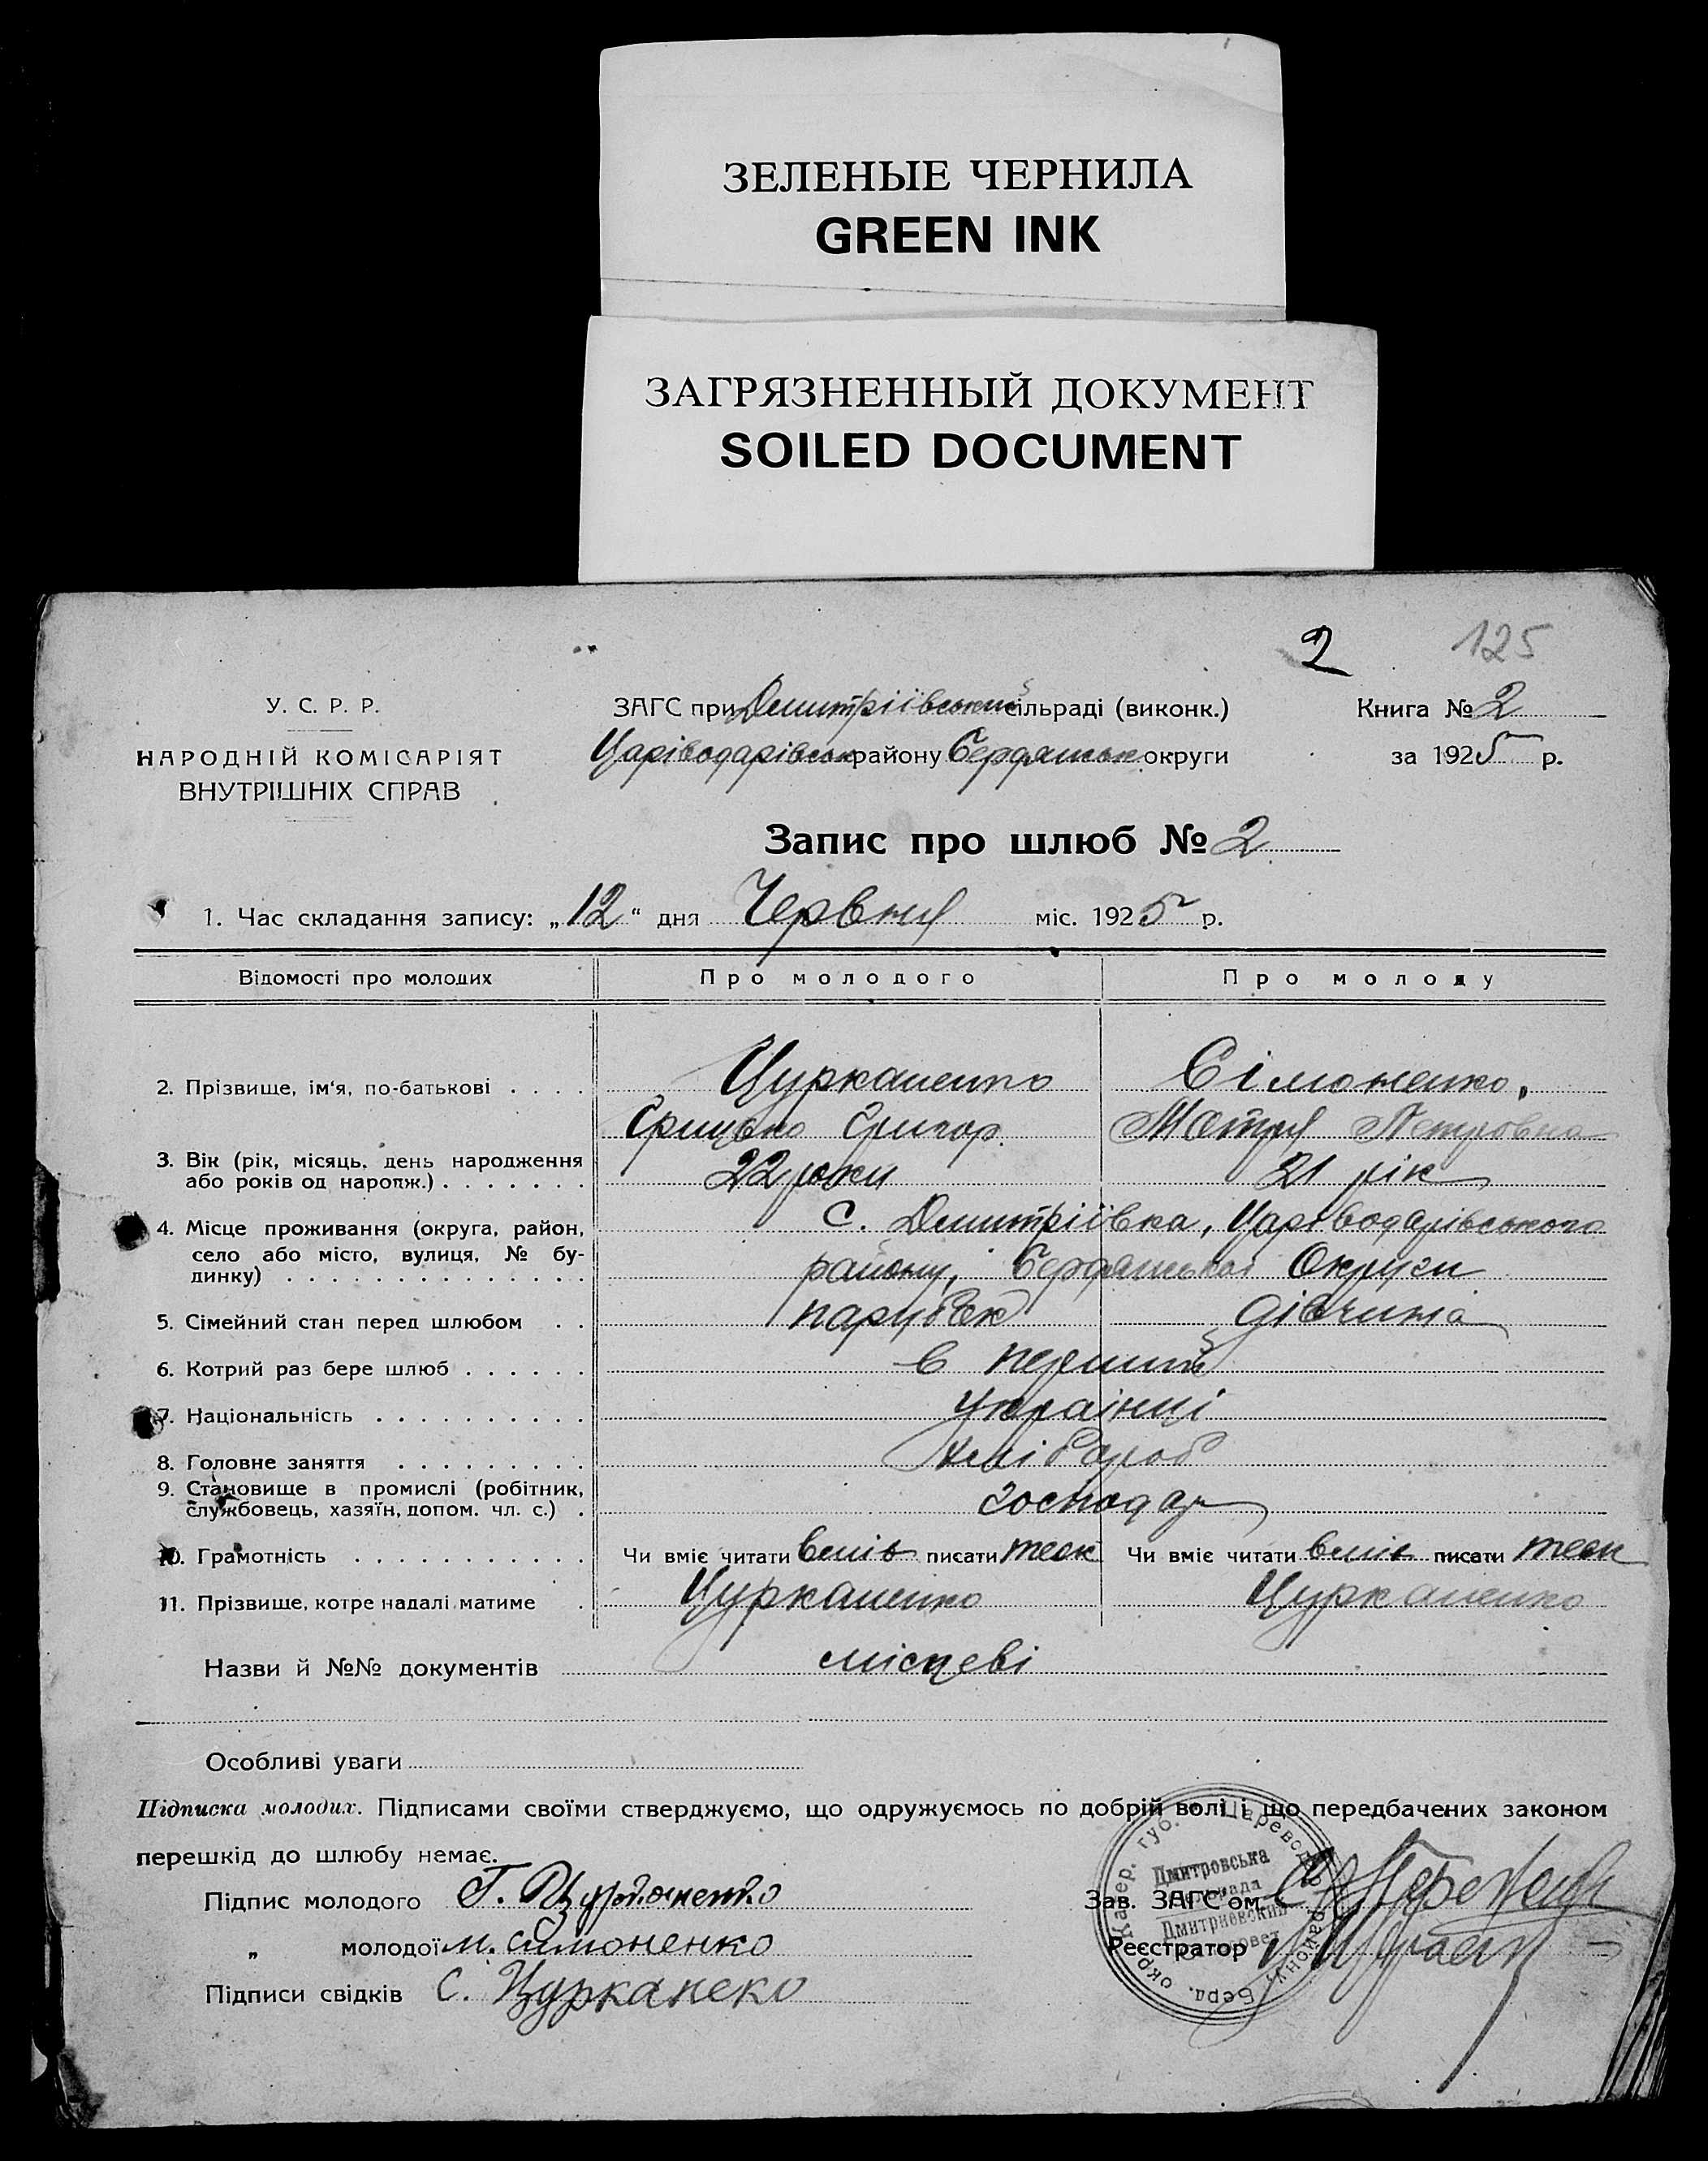 ЗЕЛЕНЫЕ ЧЕРНИЛА
GREEN INK
ЗАГРЯЗНЕННЫЙ ДОКУМЕНТ
SOILED DOCUMENT
2 125
У. С. Р. Р.
НАРОДНІЙ КОМІСАРІЯТ
ВНУТРІШНІХ СПРАВ
ЗАГС при Дмитріївський сільраді (виконк.)
Царіводарівськ району Бердянськ округи
Книга № 2
за 1925 р.
Запис про шлюб № 2
1. Час складання запису: „12“ дня Червня міс. 1925 р.
Відомості про молодих Про молодого Про молоду
2. Прізвище, ім‘я, по-батькові . . . . Цурканенко Сімоненко,
Грицько Григор. Мотря Петровна
3. Вік (рік, місяць, день народження
або років од народж.) . . . . . . . 22 роки 21 рік
4. Місце проживання (округа, район,
село або місто, вулиця, № бу-
динку) . . . . . . . . . . . . . .
с. Дмитріївка, Царіводарівського
району, Бердянської Округи
5. Сімейний стан перед шлюбом . . парубок дівчина
6. Котрий раз бере шлюб . . . . . . в перший
7. Національність . . . . . . . . . . українці
8. Головне заняття . . . . . . . . . хлібороб
9. Становище в промислі (робітник,
службовець, хазяїн, допом. чл. с.) . господар
10. Грамотність . . . . . . . . . . . Чи вміє читати вміє писати теж Чи вміє читати вміє писати теж
11. Прізвище, котре надалі матиме . Цурканенко Цурканенко
Назви й №№ документів місцеві
Особливі уваги
Підписка молодих. Підписами своїми стверджуємо, що одружуємось по добрій волі і що передбачених законом
перешкід до шлюбу немає.
Підпис молодого Г. Цурканенко
„ молодої М. Симоненко
Підписи свідків С. Цурканеко
Зав. ЗАГС‘ом
Реєстратор
Дмитровська
Сільрада
Дмитриевский